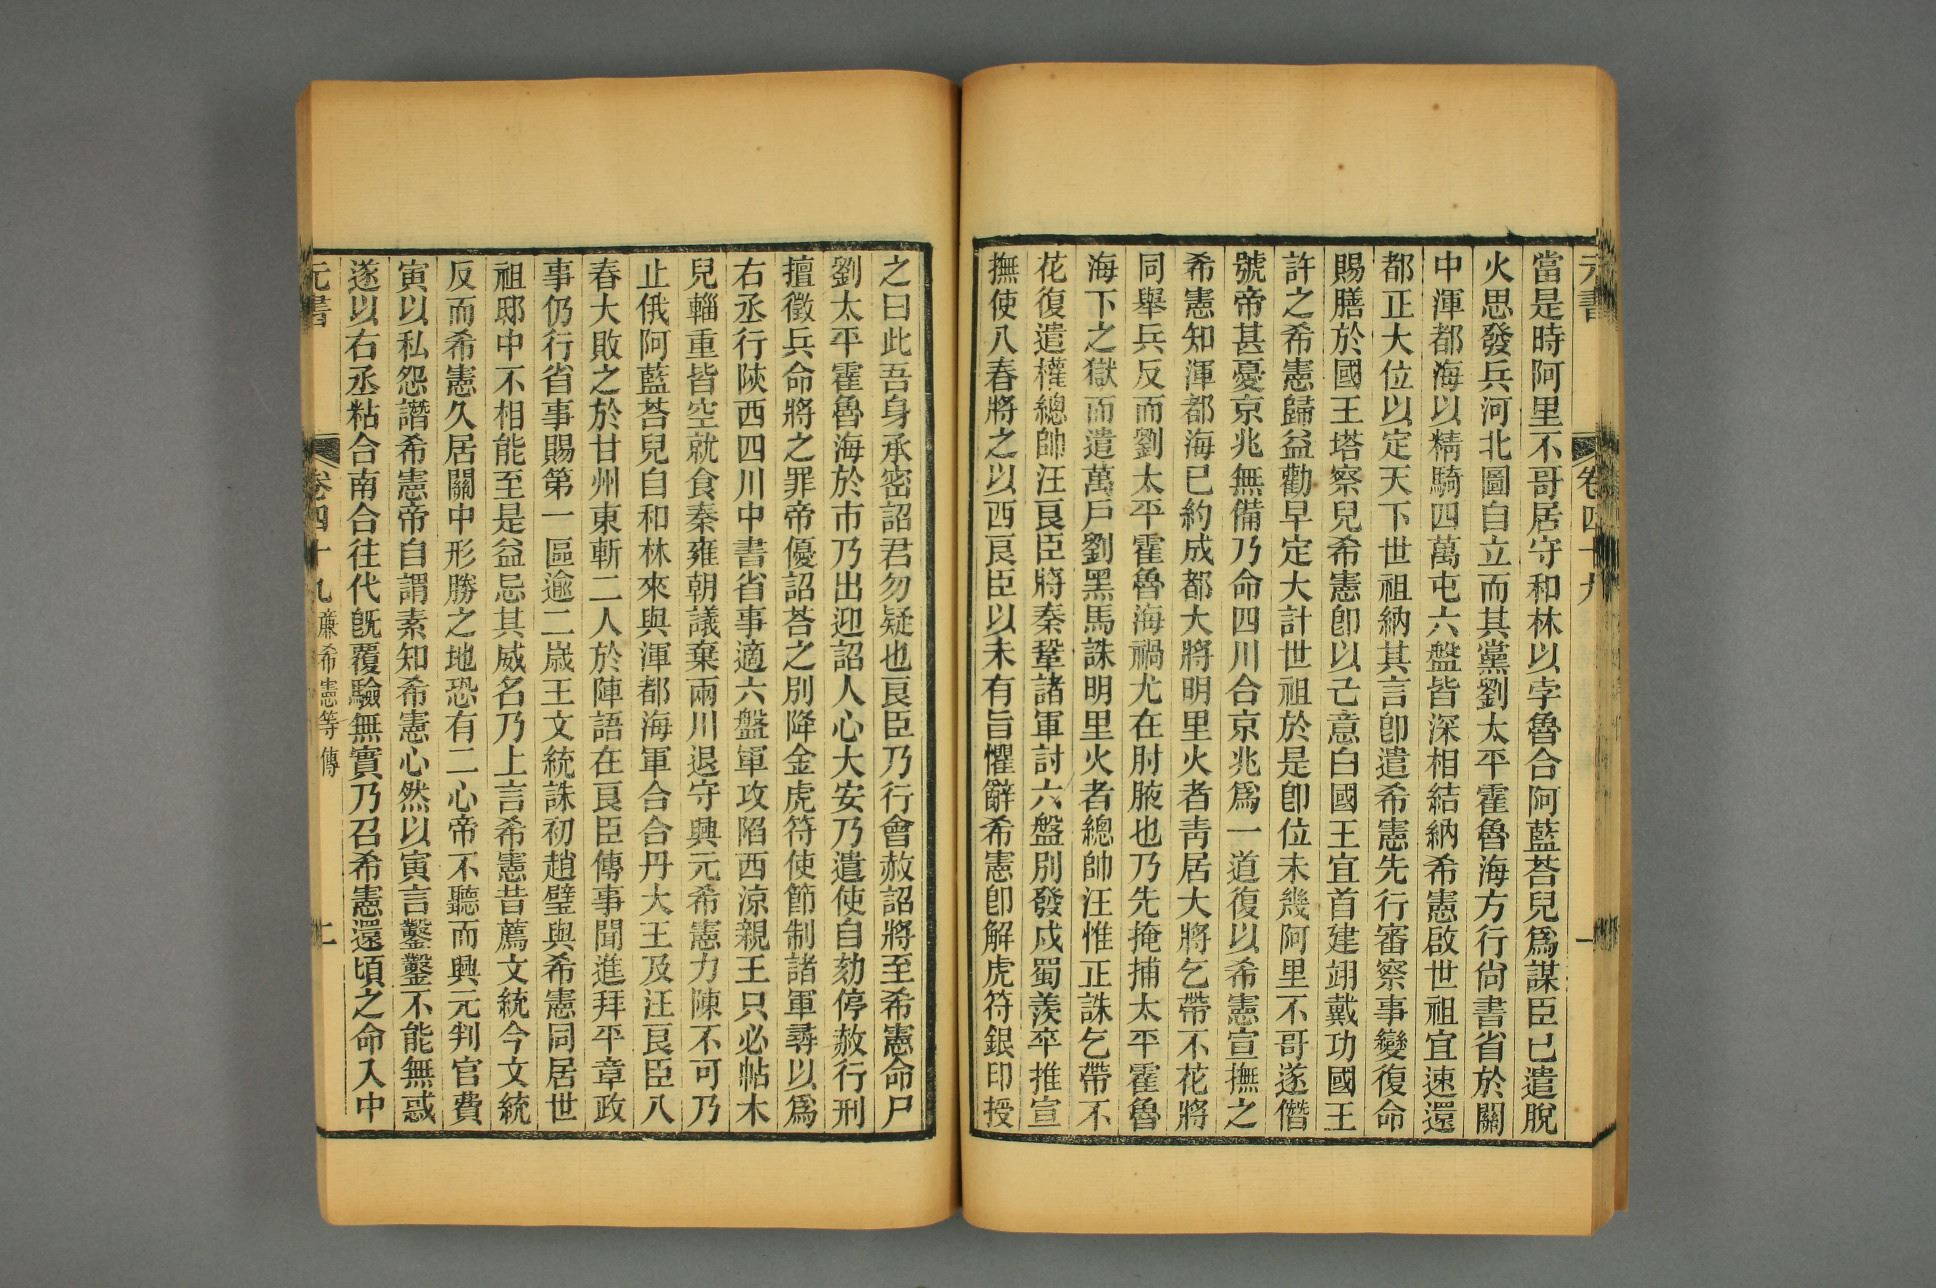 元書
卷四十九
一
當是時阿里不哥居守和林以孛魯合阿藍荅兒爲謀臣已遣脫
火思發兵河北圖自立而其黨劉太平霍魯海方行尙書省於關
中渾都海以精騎四萬屯六盤皆深相結納希憲啟世祖宜速還
都正大位以定天下世祖納其言卽遣希憲先行審察事變復命
賜膳於國王塔察兒希憲卽以己意白國王宜首建翊戴功國王
許之希憲歸益勸早定大計世祖於是卽位未幾阿里不哥遂僭
號帝甚憂京兆無備乃命四川合京兆爲一道復以希憲宣撫之
希憲知渾都海已約成都大將明里火者靑居大將乞帶不花將
同舉兵反而劉太平霍魯海禍尤在肘腋也乃先掩捕太平霍魯
海下之獄而遣萬戶劉黑馬誅明里火者總帥汪惟正誅乞帶不
花復遣權總帥汪良臣將秦鞏諸軍討六盤別發戍蜀羨卒推宣
撫使八春將之以西良臣以未有旨懼辭希憲卽解虎符銀印授
之曰此吾身承密詔君勿疑也良臣乃行會赦詔將至希憲命尸
劉太平霍魯海於市乃出迎詔人心大安乃遣使自劾停赦行刑
擅徵兵命將之罪帝優詔荅之別降金虎符使節制諸軍尋以爲
右丞行陝西四川中書省事適六盤軍攻陷西涼親王只必帖木
兒輜重皆空就食秦雍朝議棄兩川退守興元希憲力陳不可乃
止俄阿藍荅兒自和林來與渾都海軍合合丹大王及汪良臣八
春大敗之於甘州東斬二人於陣語在良臣傳事聞進拜平章政
事仍行省事賜第一區逾二歲王文統誅初趙璧與希憲同居世
祖邸中不相能至是益忌其威名乃上言希憲昔薦文統今文統
反而希憲久居關中形勝之地恐有二心帝不聽而興元判官費
寅以私怨譖希憲帝自謂素知希憲心然以寅言鑿鑿不能無惑
遂以右丞粘合南合往代旣覆驗無實乃召希憲還頃之命入中
元書
卷四十九
廉希憲等傳
二